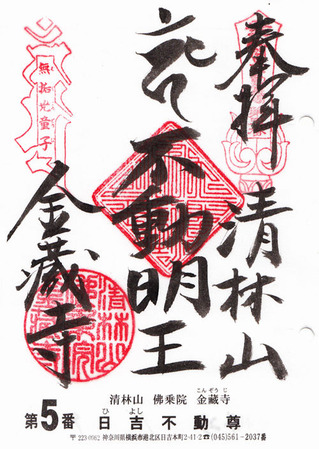 奉拝
清林山
不動明王
無垢光童子
金蔵寺
清林山 佛乗院 金蔵寺
こんぞうじ
第5番 日吉不動尊
ひよし
〒223-0062 神奈川県横浜市港北区日吉本町2-41-2☎(045)561-2037番